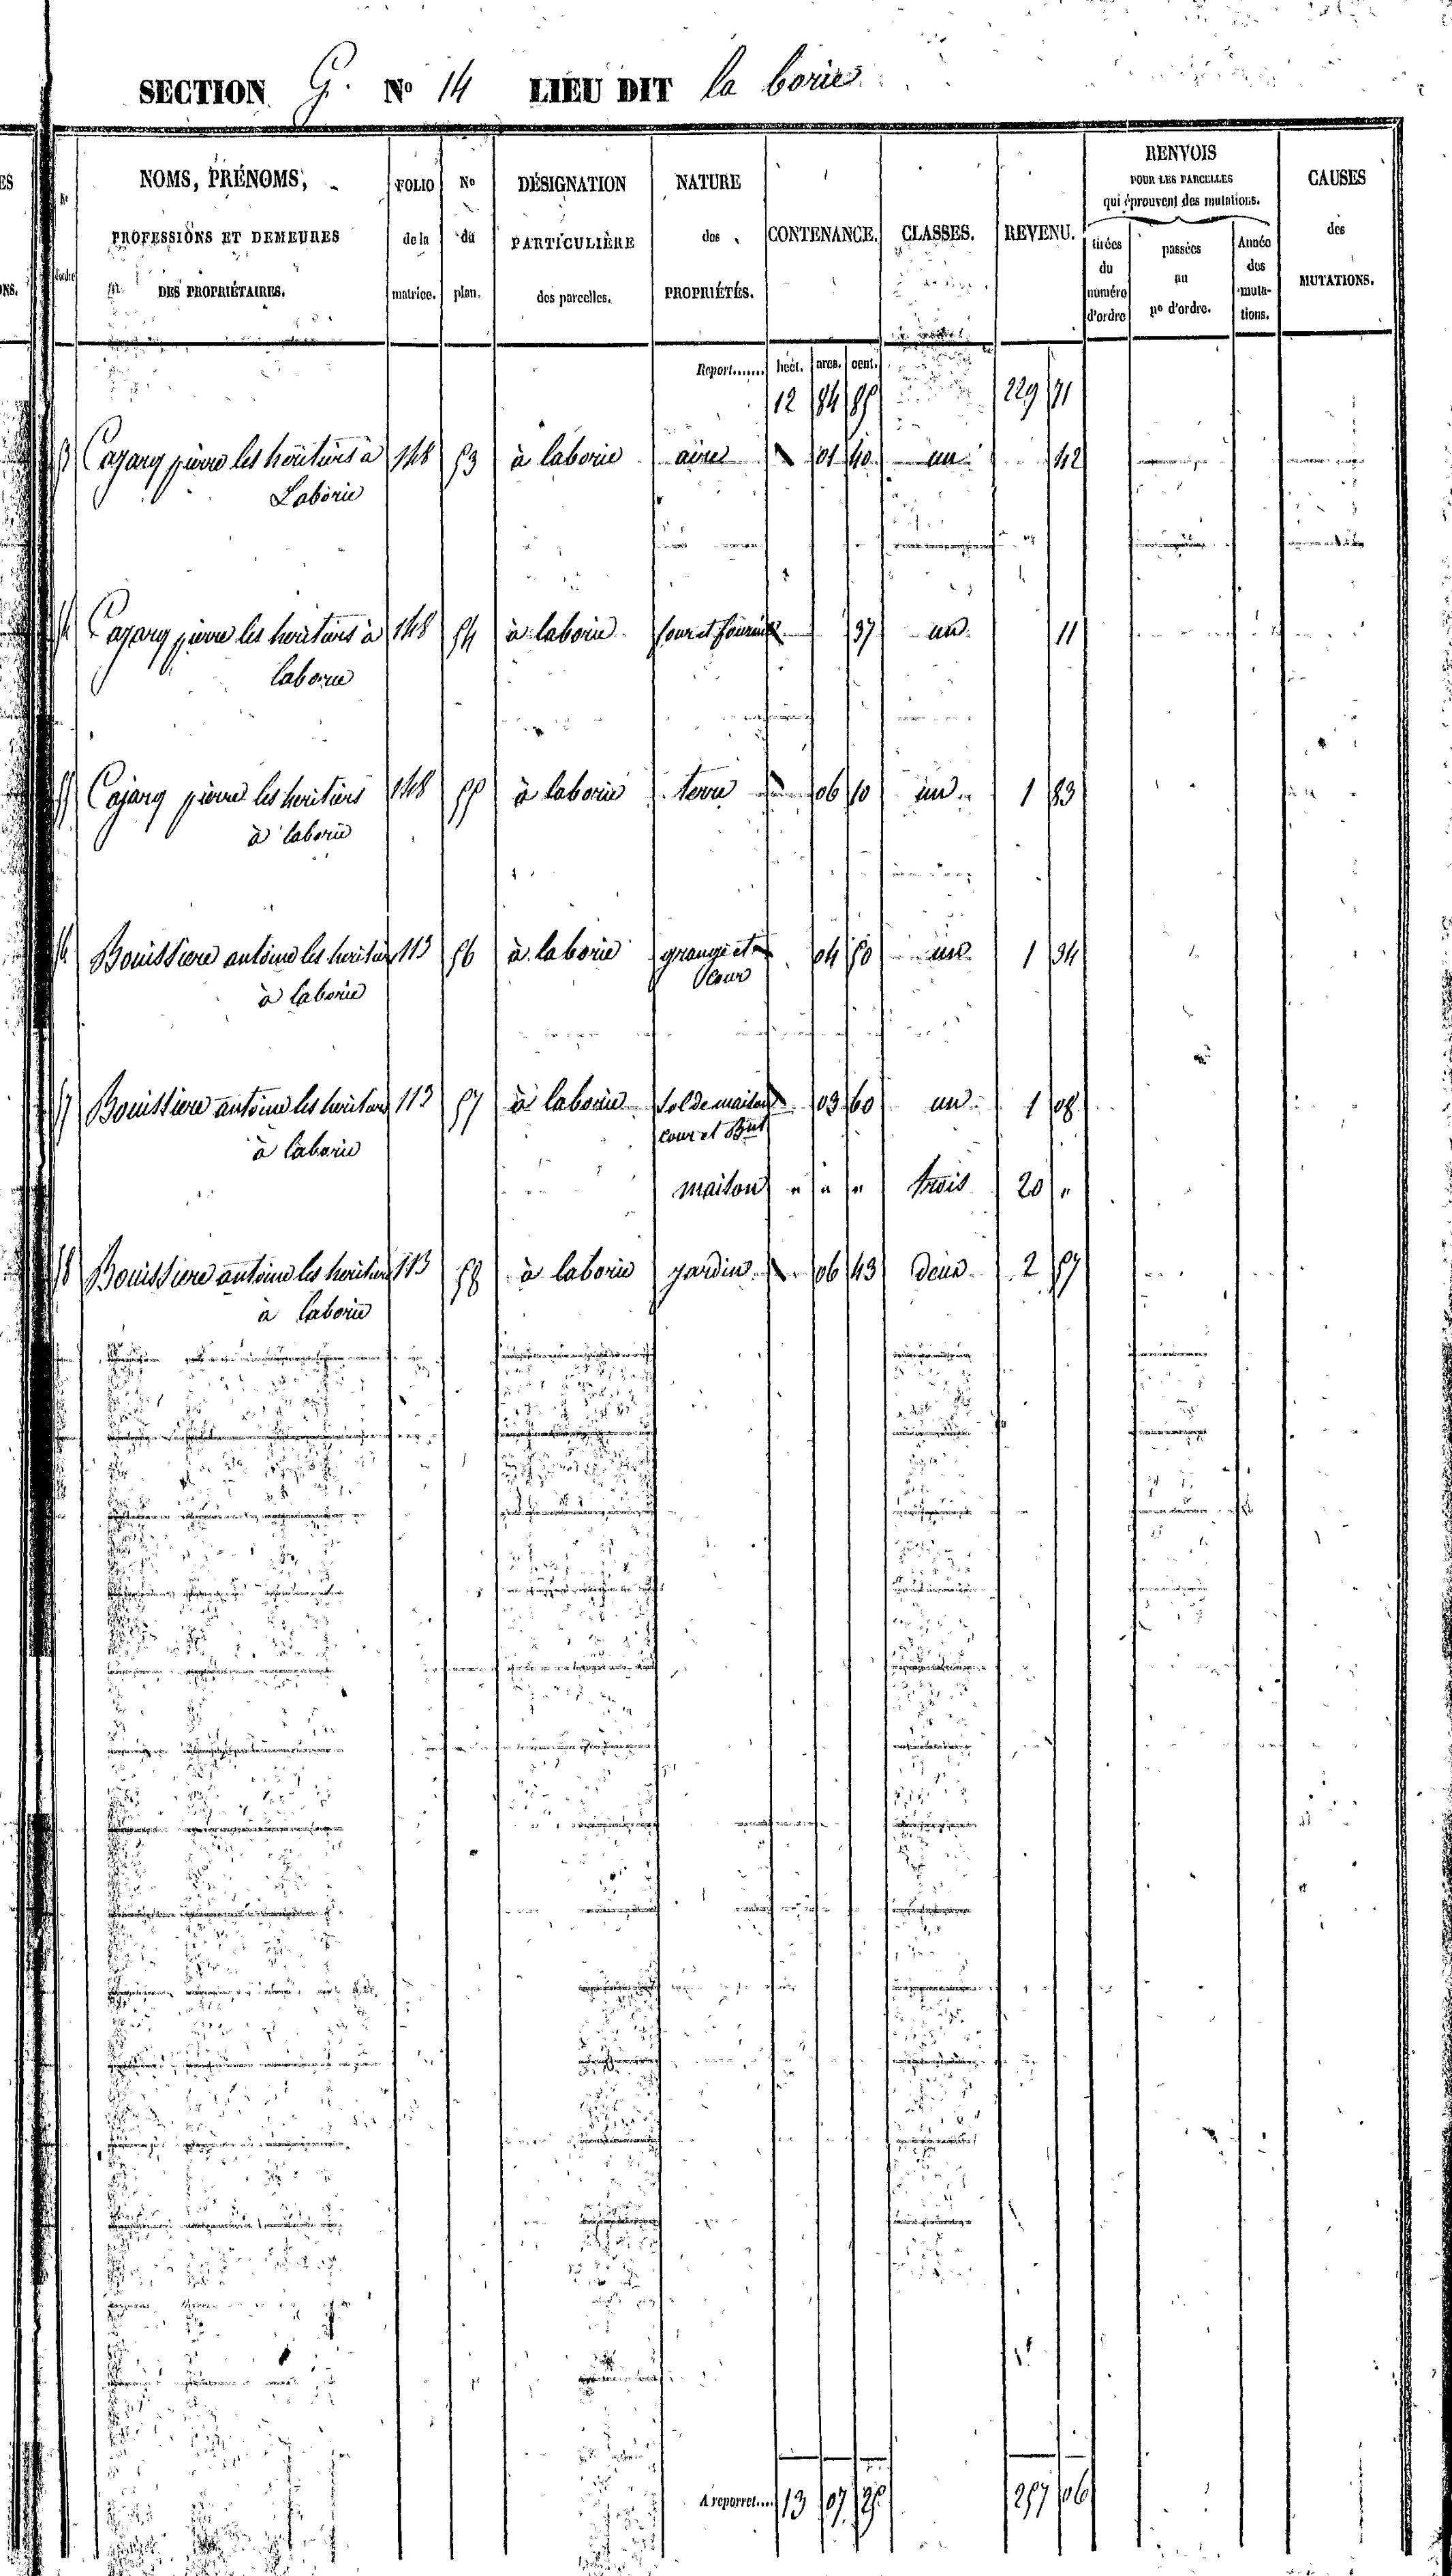 SECTION G. N° 14 LIEU DIT la borie
NOMS, PRÉNOMS, PROFESSIONS ET DEMEURES DES PROPRIÉTAIRES.
FOLIO de la matrice.
N° du plan.
DÉSIGNATION PARTICULIÈRE des parcelles.
NATURE des PROPRIÉTÉS.
CONTENANCE.
CLASSES.
REVENU.
RENVOIS
POUR LES PARCELLES
qui éprouvent des mutations.
tirées du numéro d'ordre
passées au n° d'ordre.
Année des muta-tions.
CAUSES des MUTATIONS.
Report....... hect. ares. cent.
12 84 85 229 71
Cajarg pierre les héritiers à 148 53 à laborie aire 01 40 un 42
Laborie
Cajarg pierre les heritiers à 148 54 à laborie four et 37 un 11
laborie
Cajarg pierre les heritiers 148 55 à laborie terre 06 10 un 1 83
à laborie
Bouissiere antoine les heritiers 113 56 à laborie grange et 04 50 un 1 34
à laborie Cour
Bouissiere antoine les heritiers 113 57 à laborie Sol de maison 03 60 un 1 08
à laborie cour et
maison " " " trois 20 "
Bouissiere antoine les heritiers 113 58 à laborie jardin 06 43 deux 2 57
à laborie
A reporter.... 13 07 25 257 06